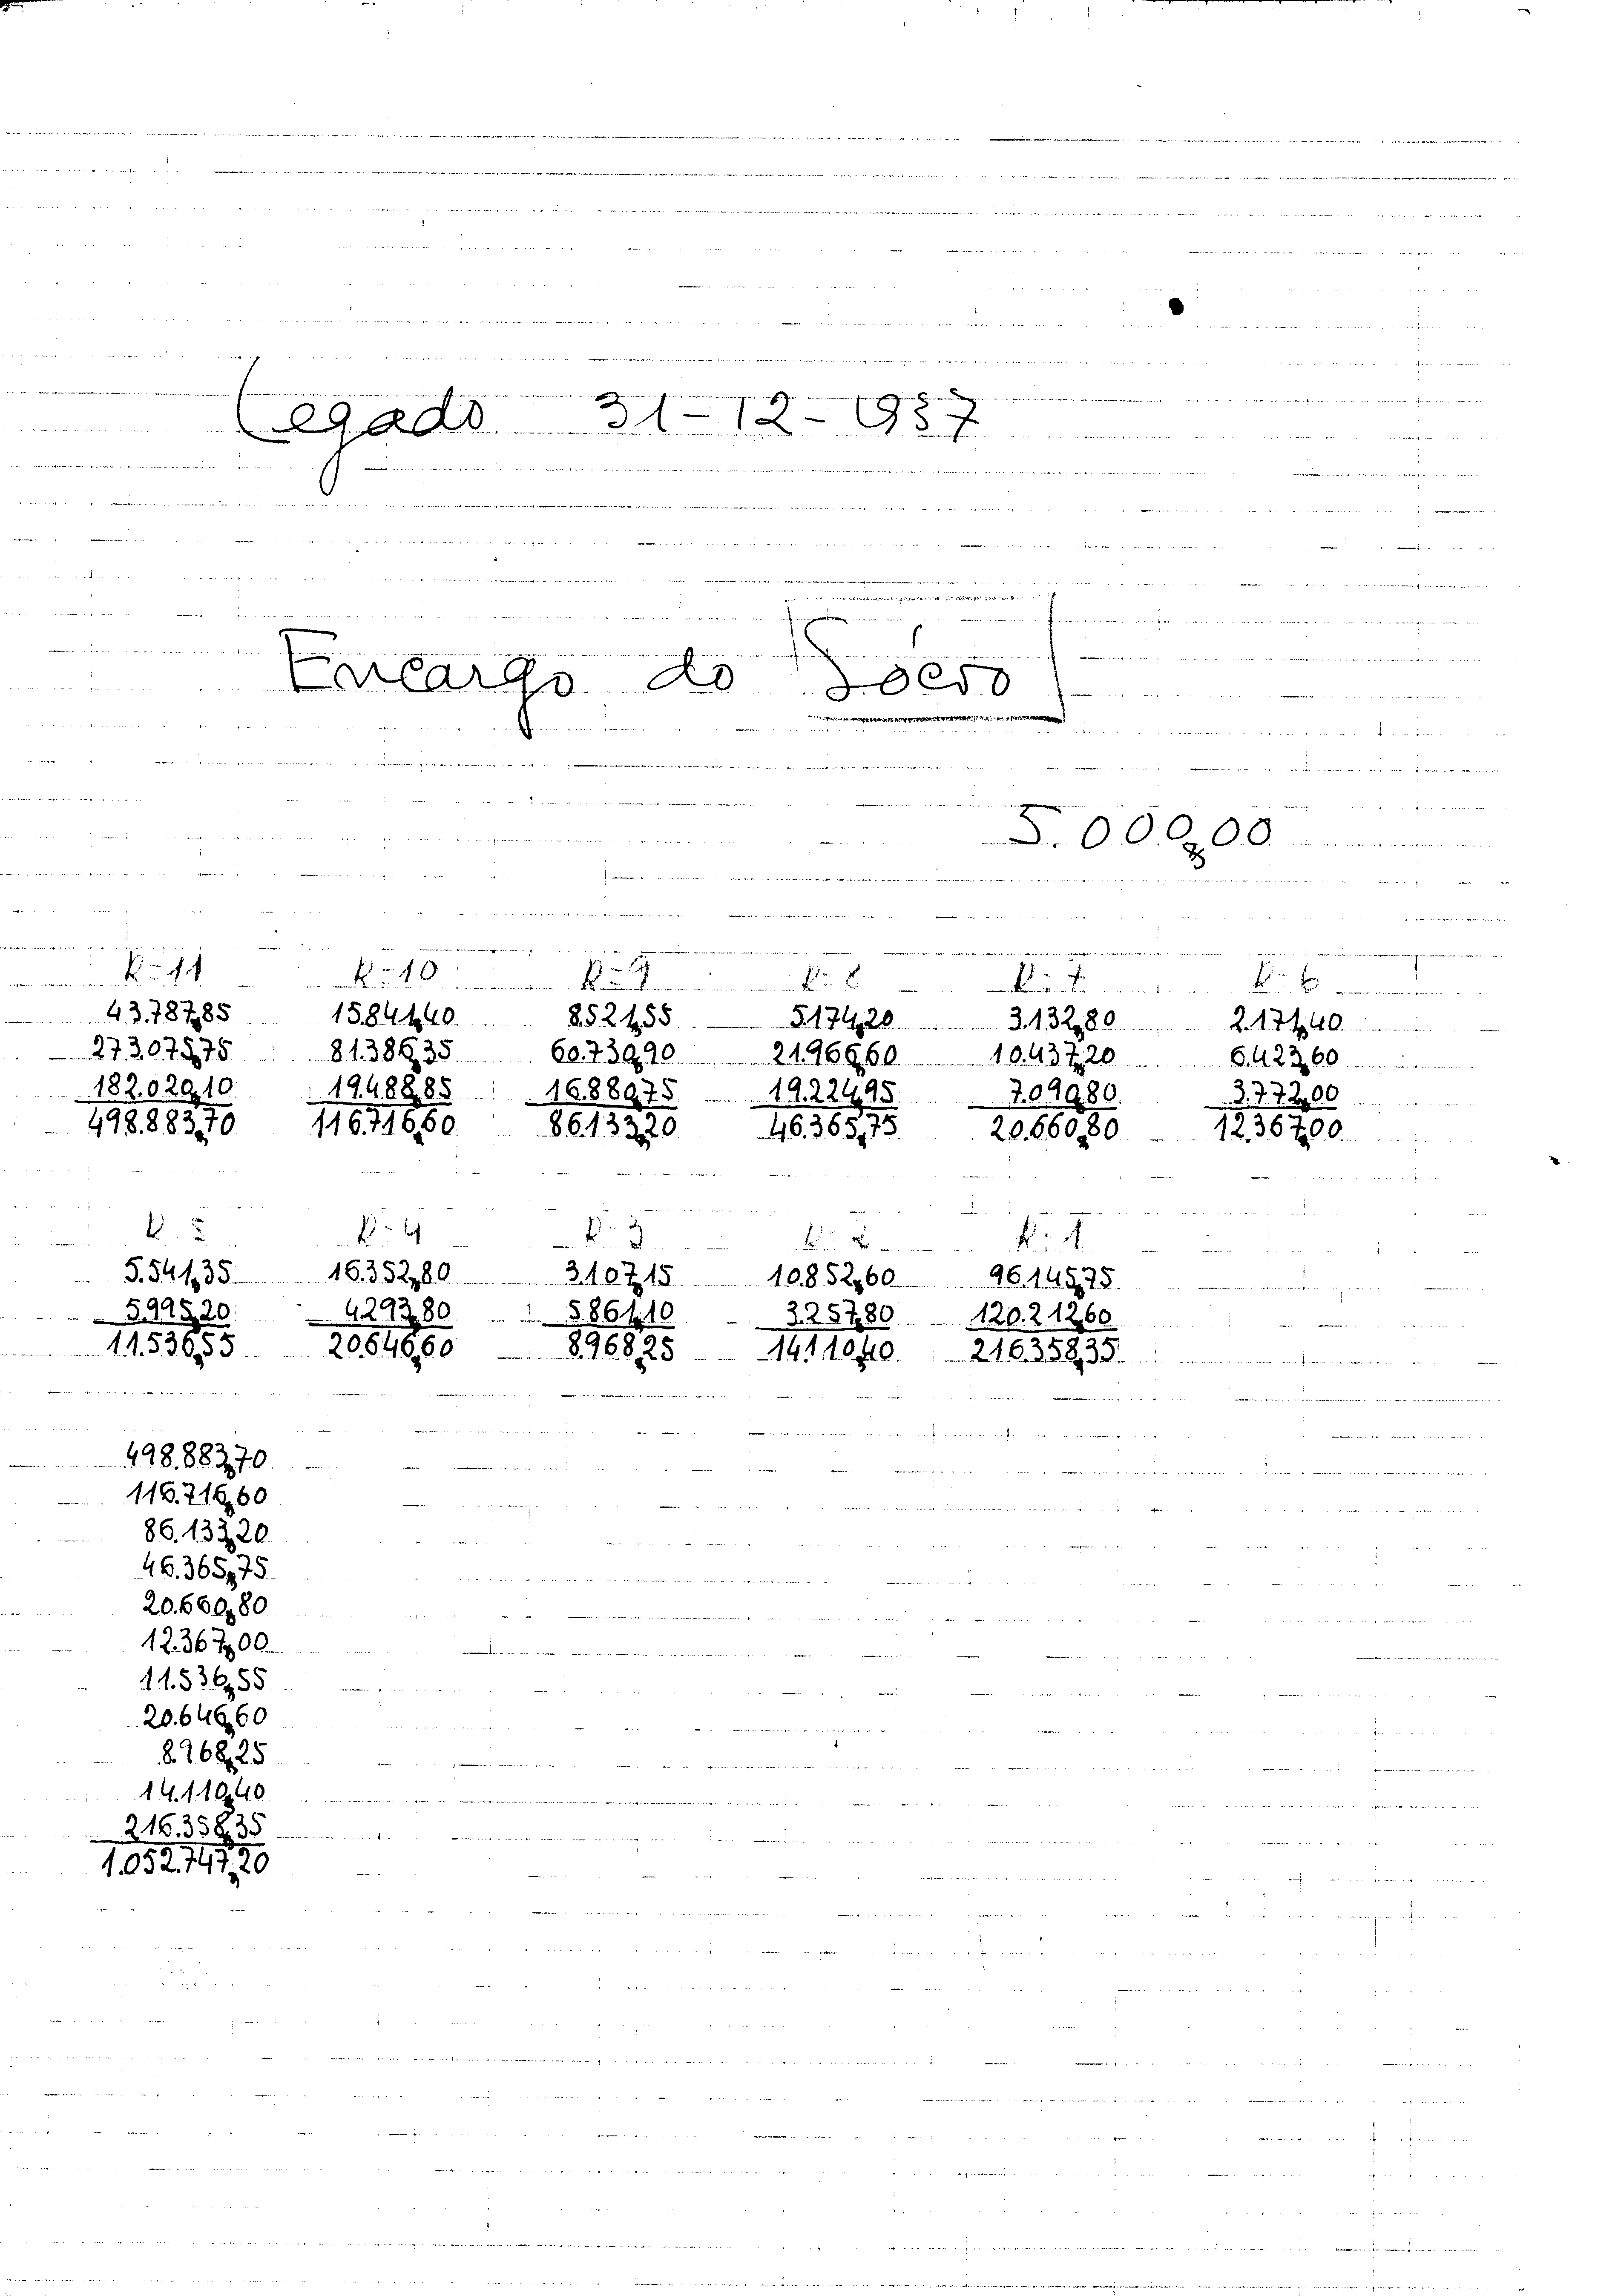 Legado 31-12-1987
Encargo do Sócio
5.000,00
R-11 R-10 R-9 R-8 R-7 R-6
43.787,85 15.841,40 8.521,55 5.174,20 3.132,80 2.171,40
273.075,75 81.386,35 60.739,90 21.966,60 10.437,20 6.423,60
182.020,10 19.488,85 16.880,75 19.224,95 7.090,80 3.772,00
498.883,70 116.716,60 86.133,20 46.365,75 20.660,80 12.367,00
R-5 R-4 R-3 R-2 R-1
5.541,35 16.352,80 3.107,15 10.852,60 96.145,75
5.995,20 4.293,80 5.861,10 3.257,80 120.212,60
11.536,55 20.646,60 8.968,25 14.110,40 216.358,35
498.883,70
116.716,60
86.133,20
46.365,75
20.660,80
12.367,00
11.536,55
20.646,60
8.968,25
14.110,40
216.358,35
1.052.747,20